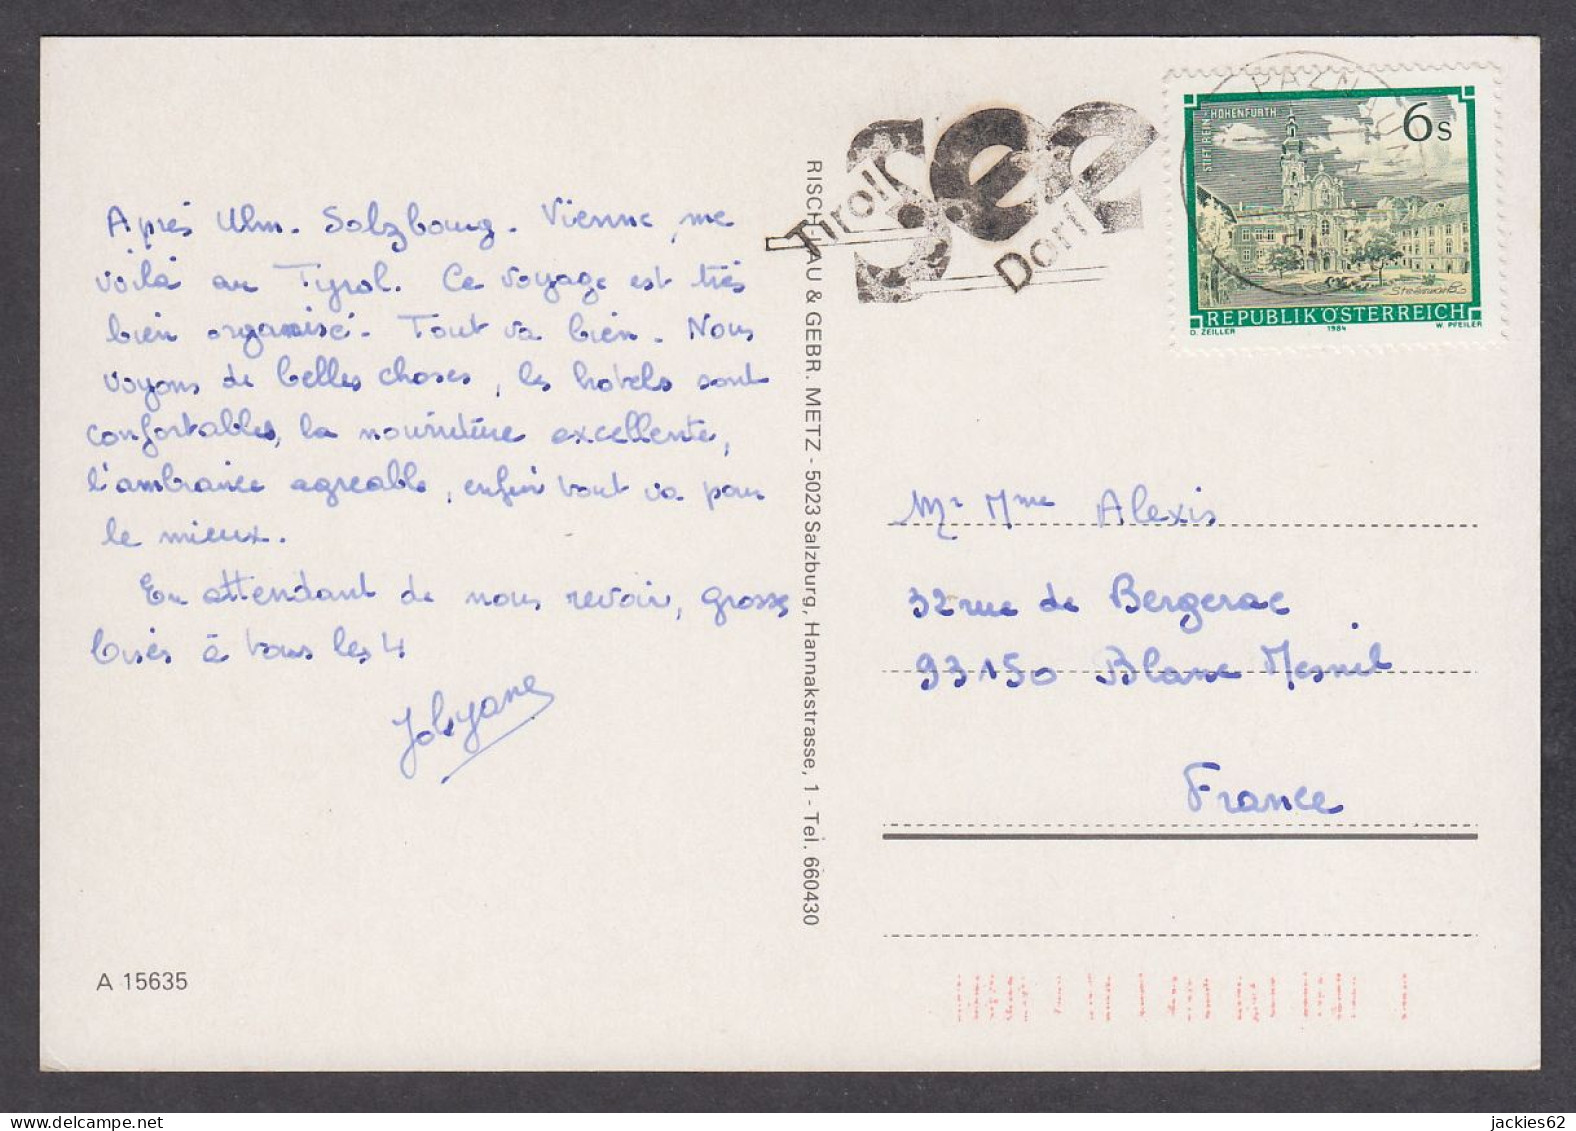 Après Ulm. Salzbourg. Vienne, me
voilà au Tyrol. Ce voyage est très
bien organisé. Tout va bien. Nous
voyons de belles choses, les hotels sont
confortables, la nourriture excellente,
l'ambiance agreable, enfin tout va pour
le mieux.
En attendant de nous revoir, grosses
bises à tous les 4
Jolyane
A 15635
RISCH-LAU & GEBR. METZ - 5023 Salzburg, Hannakstrasse, 1 - Tel. 660430
see
Tirol
Dorf
PAZNAUN
STIFT REIN-HOHENFURTH
6s
REPUBLIK ÖSTERREICH
O. ZEILLER 1984 W. PFEILER
Mr Mme Alexis
32 rue de Bergerac
93150 Blanc Mesnil
France
jackies62